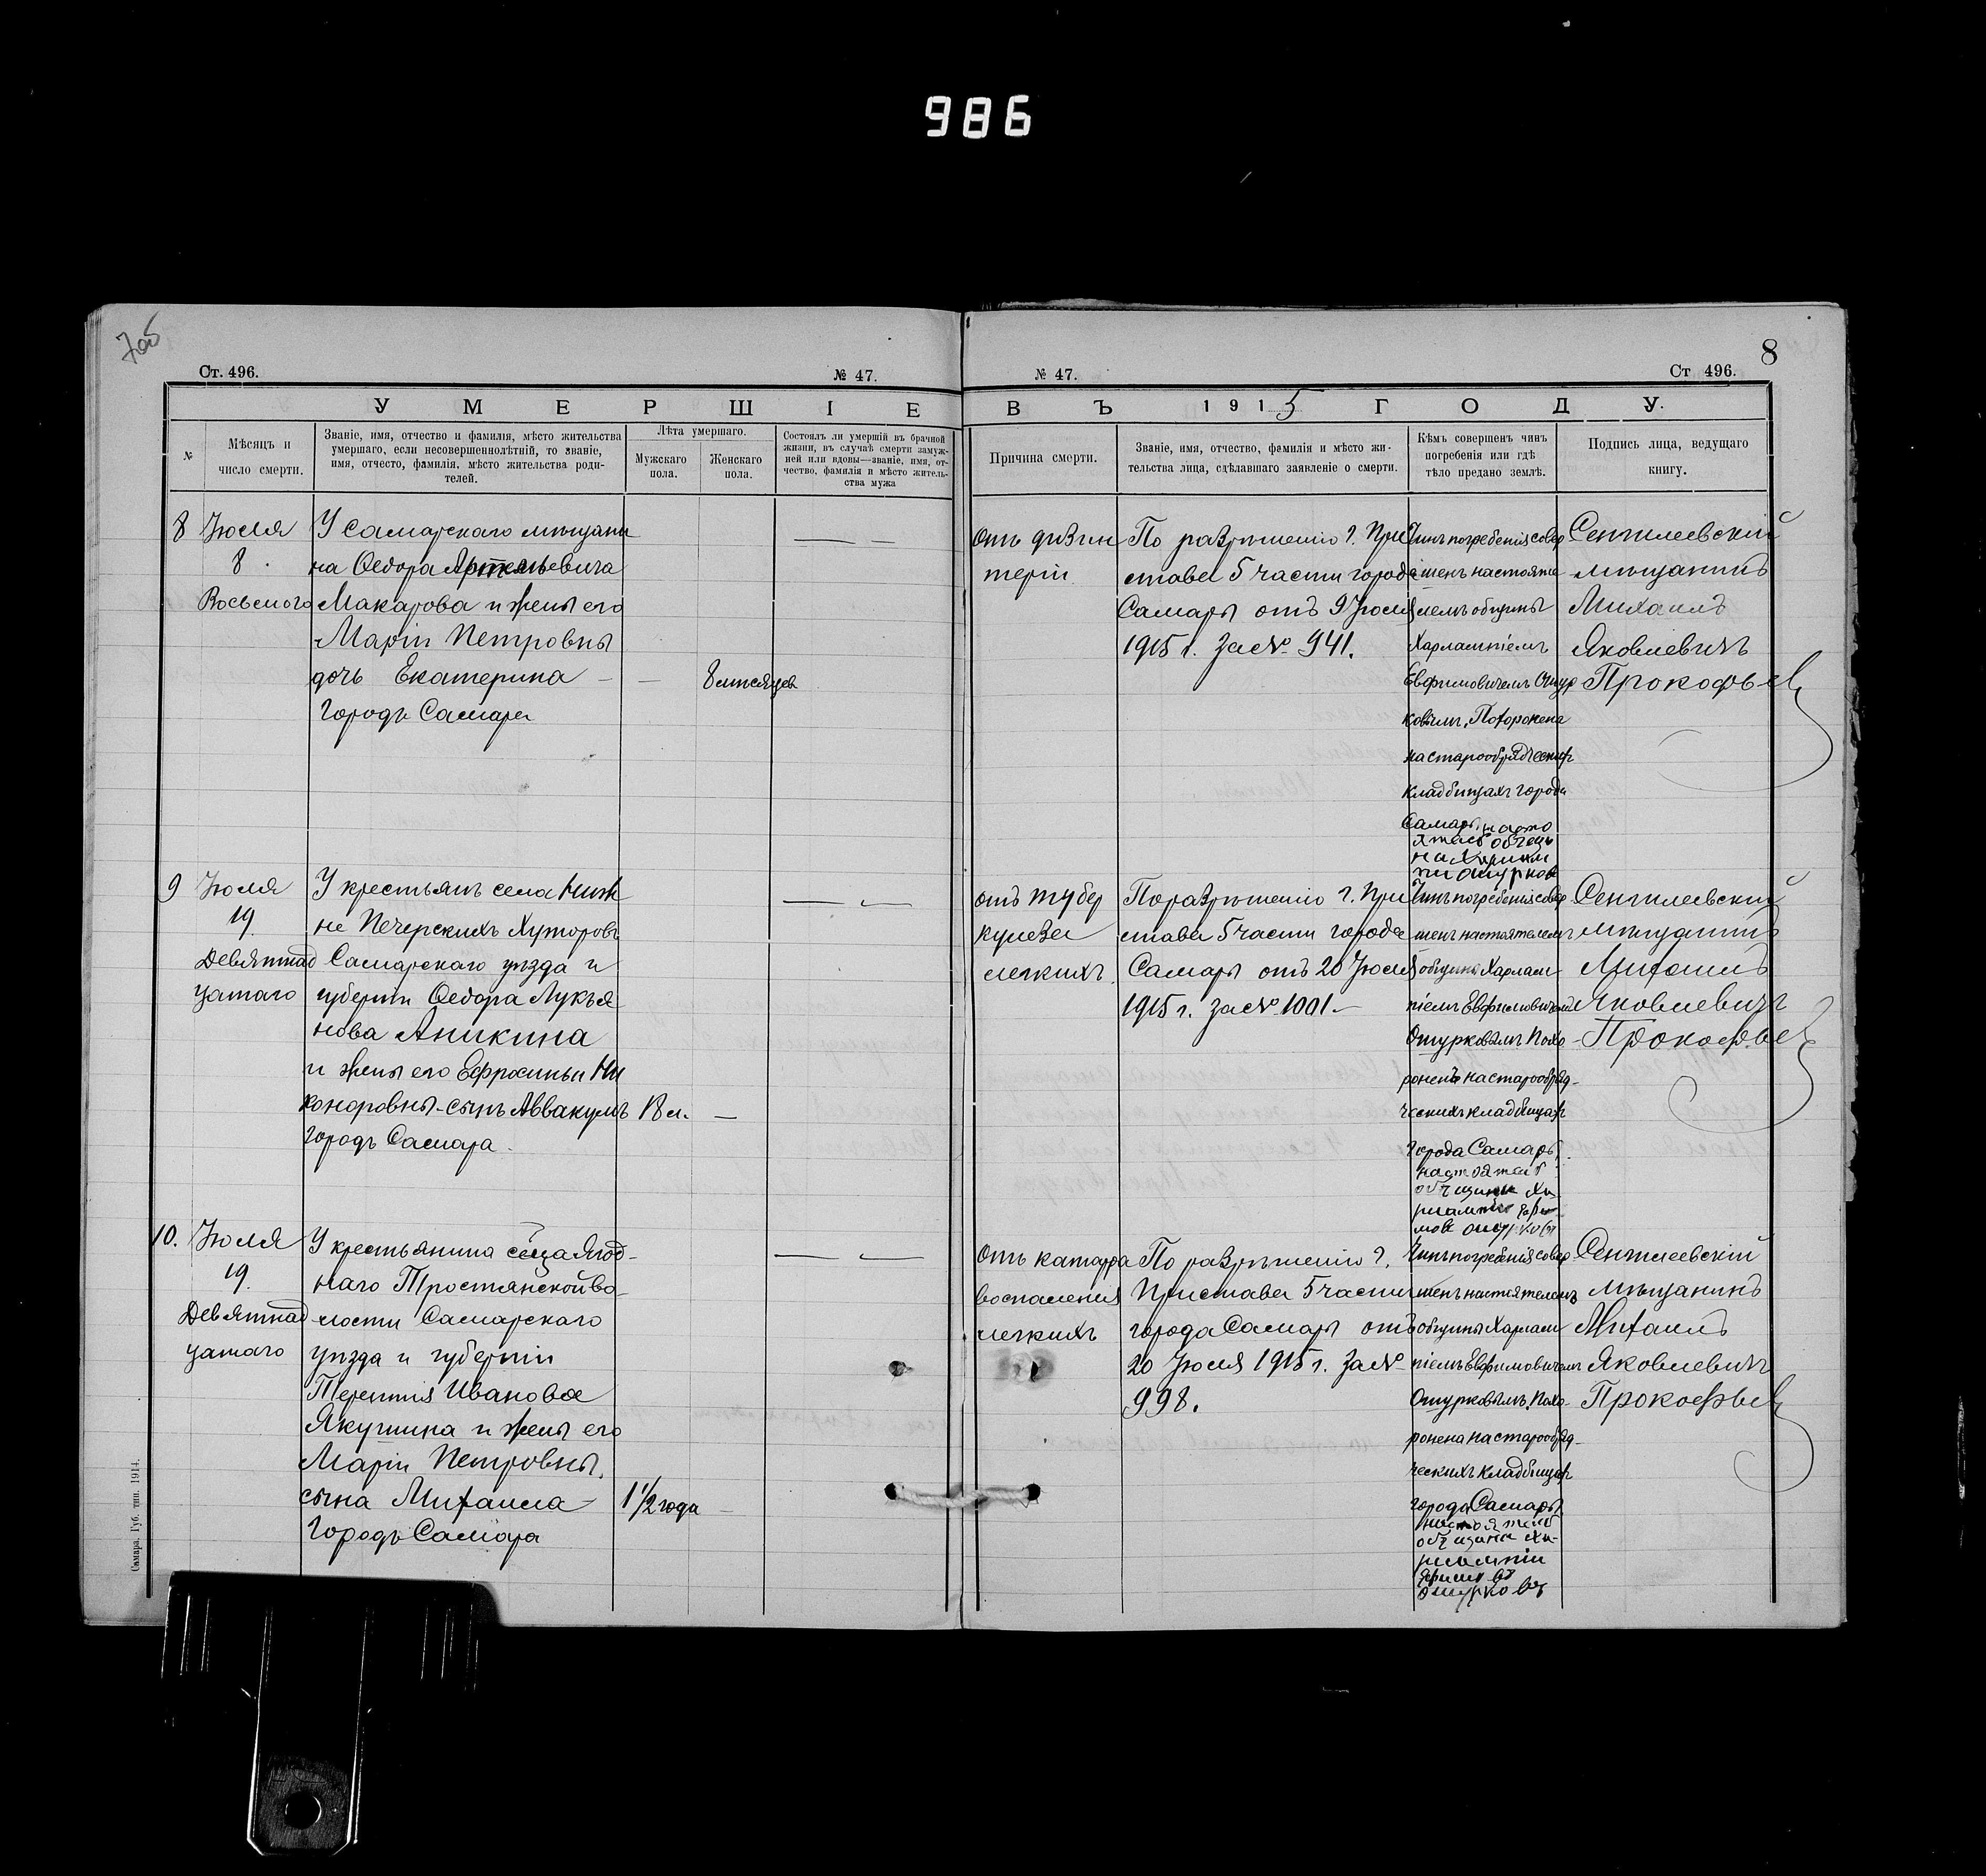 986
7об
8
Ст. 496.
№ 47.
№ 47.
Ст 496.
УМЕРШІЕ
ВЪ 1915 ГОДУ.
№
Мѣсяцъ и
число смерти.
Званіе, имя, отчество и фамилія, мѣсто жительства
умершаго, если несовершеннолѣтній, то званіе,
имя, отчесто, фамилія, мѣсто жительства роди-
телей.
Лѣта умершаго.
Мужскаго
пола.
Женскаго
пола.
Состоялъ ли умершій въ брачной
жизни, въ случаѣ смерти замуж-
ней или вдовы—званіе, имя, от-
чество, фамилія и мѣсто житель-
ства мужа
Причина смерти.
Званіе, имя, отчество, фамилія и мѣсто жи-
тельства лица, сдѣлавшаго заявленіе о смерти.
Кѣмъ совершенъ чинъ
погребенія или гдѣ
тѣло предано землѣ.
Подпись лица, ведущаго
книгу.
8
Іюля
8.
Восьмого
У Самарскаго мѣщани
на Ѳедора Артемьевича
Макарова и жены его
Маріи Петровны
дочь Екатерина — —
городъ Самара
8 мѣсяцев
— —
отъ дизин
теріи
По разрѣшенію г. При
става 5 части города
Самары отъ 9 Іюля
1915 г. за № 941.
Чинъ погребенія совер
шенъ настояте
лемъ общины
Харлампіемъ
Евфимовичемъ Ошур
ковымъ, Похоронена
на старообрядческихъ
кладбищахъ города
Самары, насто
ятель общены
на Харлам
пи Ошурков
Сенгилеевскій
мѣщанинъ
Михаилъ
Яковлевичъ
Прокофьевъ
9
Іюля
19.
Девятнад
цатаго
У крестьянъ села Ниж
не Печерскихъ Хуторовъ
Самарскаго уѣзда и
губерніи Ѳедора Лукья
нова Аникина
и жены его Ефросиньи Ни
коноровны-сынъ Аввакумъ
городъ Самара.
18 л. —
— —
отъ тубер
кулеза
легкихъ.
По разрѣшенію г. При
става 5 части города
Самары отъ 20 Іюля
1915 г. за № 1001.—
Чинъ погребенія совер
шенъ настоятелемъ
общины Харлам
піемъ Евфимовичемъ
Ошурковымъ, Похо-
роненъ на старообряд-
ческихъ кладбищахъ
города Самары,
настоятель
общины Ха-
рлампи Ефи-
мов Ошурков
Сенгилеевскій
мѣщанинъ
Михаилъ
Яковлевичъ
Прокофьевъ
10.
Іюля
19.
Девятнад
цатаго
У крестьянина сельца Ягод-
наго Тростянской во-
лости Самарскаго
уѣзда и губерніи
Терентія Иванова
Якушина и жены его
Маріи Петровны.
сына Михаила
городъ Самара
1 1/2 года —
— —
Отъ катарра
воспаленія
легкихъ
По разрѣшенію г.
Пристава 5 части
города Самары отъ
20 Іюля 1915 г. за №
998.
Чинъ погребенія совер
шенъ настоятелемъ
общины Харлам
піемъ Евфимовичемъ
Ошурковымъ, Похо-
ронена на старообряд-
ческихъ кладбищахъ
города Самары,
настоятель
общины Ха-
рлампии
Ефимов
Ошурковъ
Сенгилеевскій
мѣщанинъ
Михаилъ
Яковлевичъ
Прокофьевъ
Самара. Губ. тип. 1914.